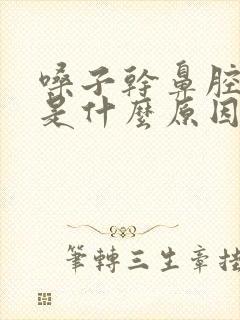 嗓子幹鼻腔
是什麼原因
筆轉三生章掛